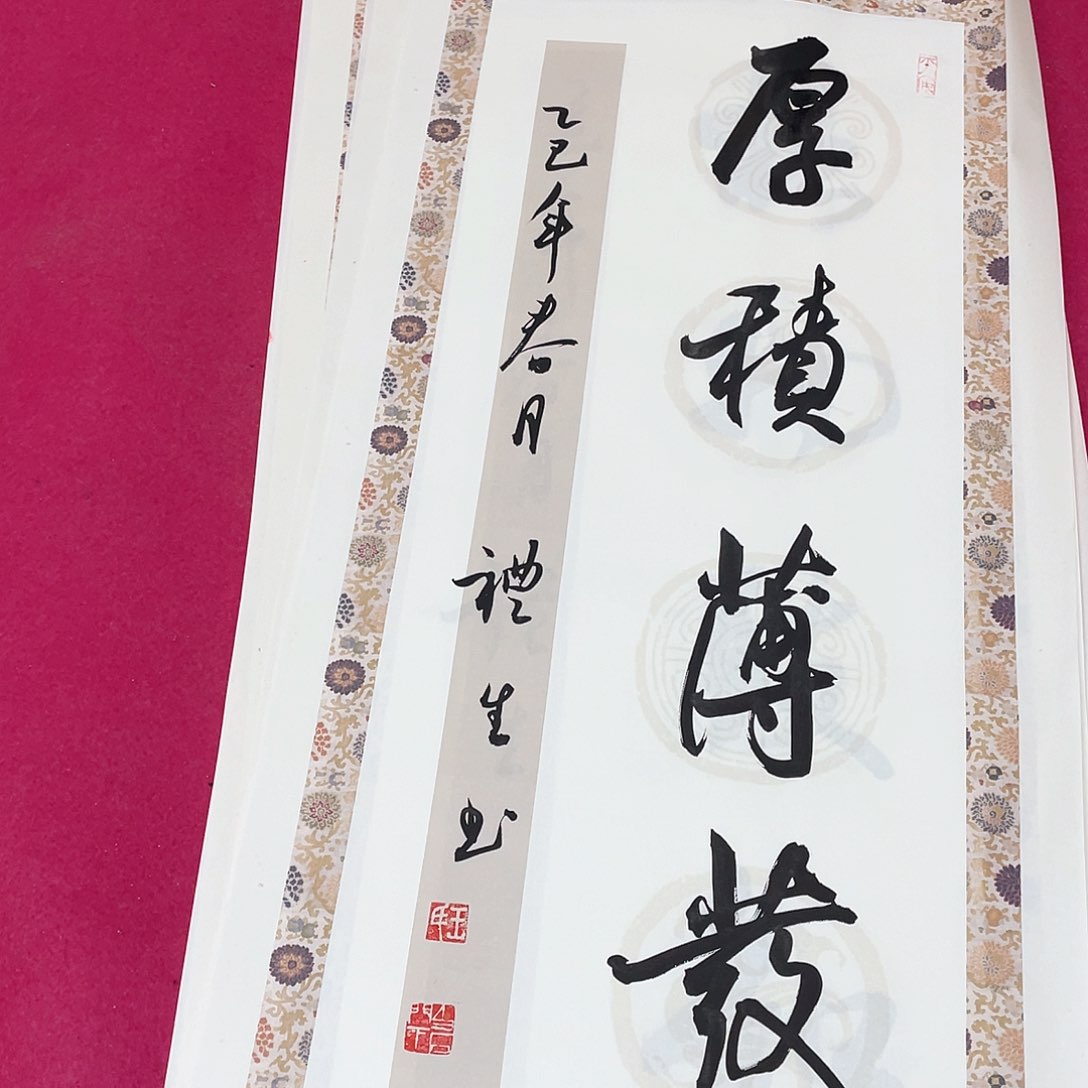 厚積薄發
乙巳年春月 禮生书